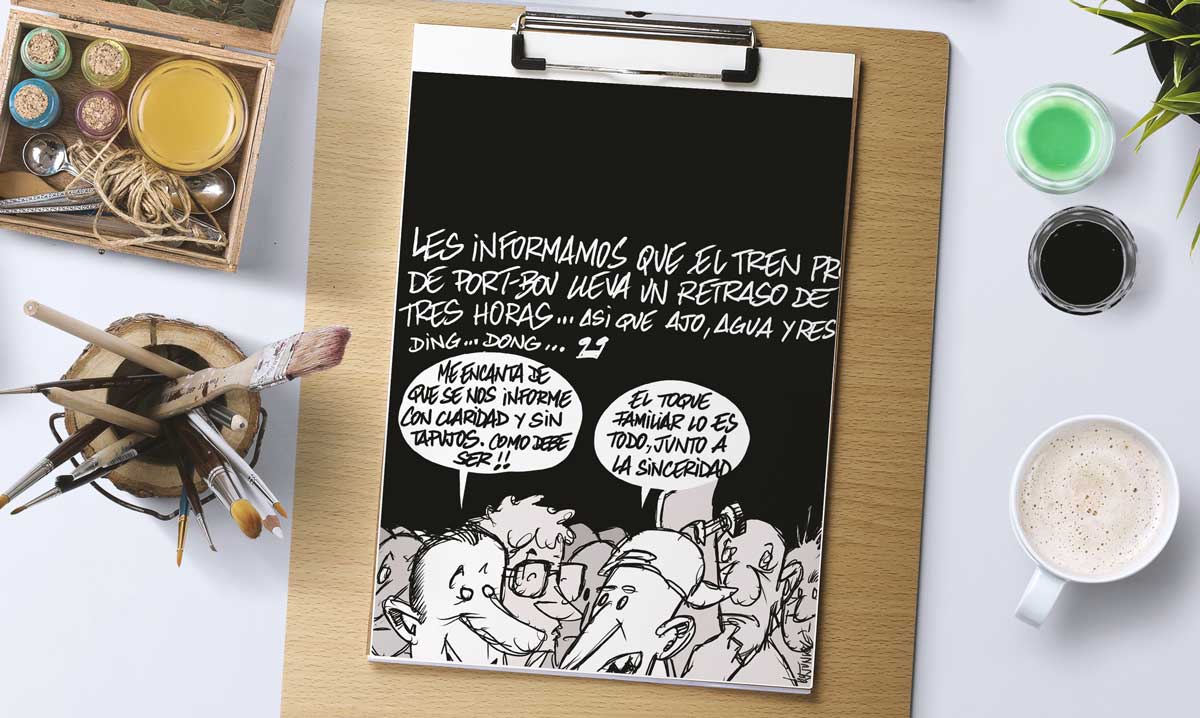 LES iNFORMAMOS QUE EL TREN PR
DE PORT-BOU LLEVA UN RETRASO DE
TRES HORAS... ASi QUE AJO, AGUA Y RES
DiNG... DONG...
ME ENCANTA DE
QUE SE NOS iNFORME
CON CLARIDAD Y SiN
TAPUJOS. COMO DEBE
SER!!
EL TOQUE
FAMILIAR LO ES
TODO, JUNTO A
LA SiNCERIDAD